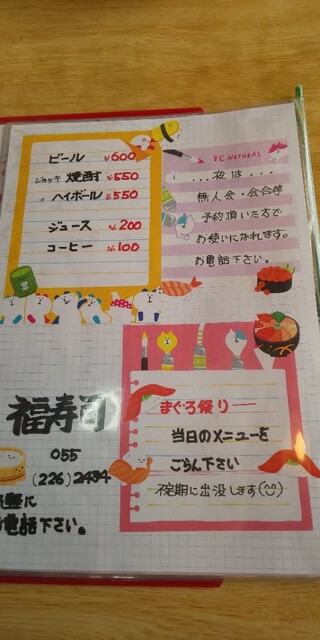 ビール ¥600
ジョッキ 焼酎 ¥550
〃 ハイボール ¥550
ジュース ¥200
コーヒー ¥100
BE NATURAL
...夜は...
無人会・会合等
予約頂いた方で
お使いになれます。
お電話下さい。
福寿司
055
(226) 2434
軽に
電話下さい。
まぐろ祭り
当日のメニューを
ごらん下さい
不定期に出没します